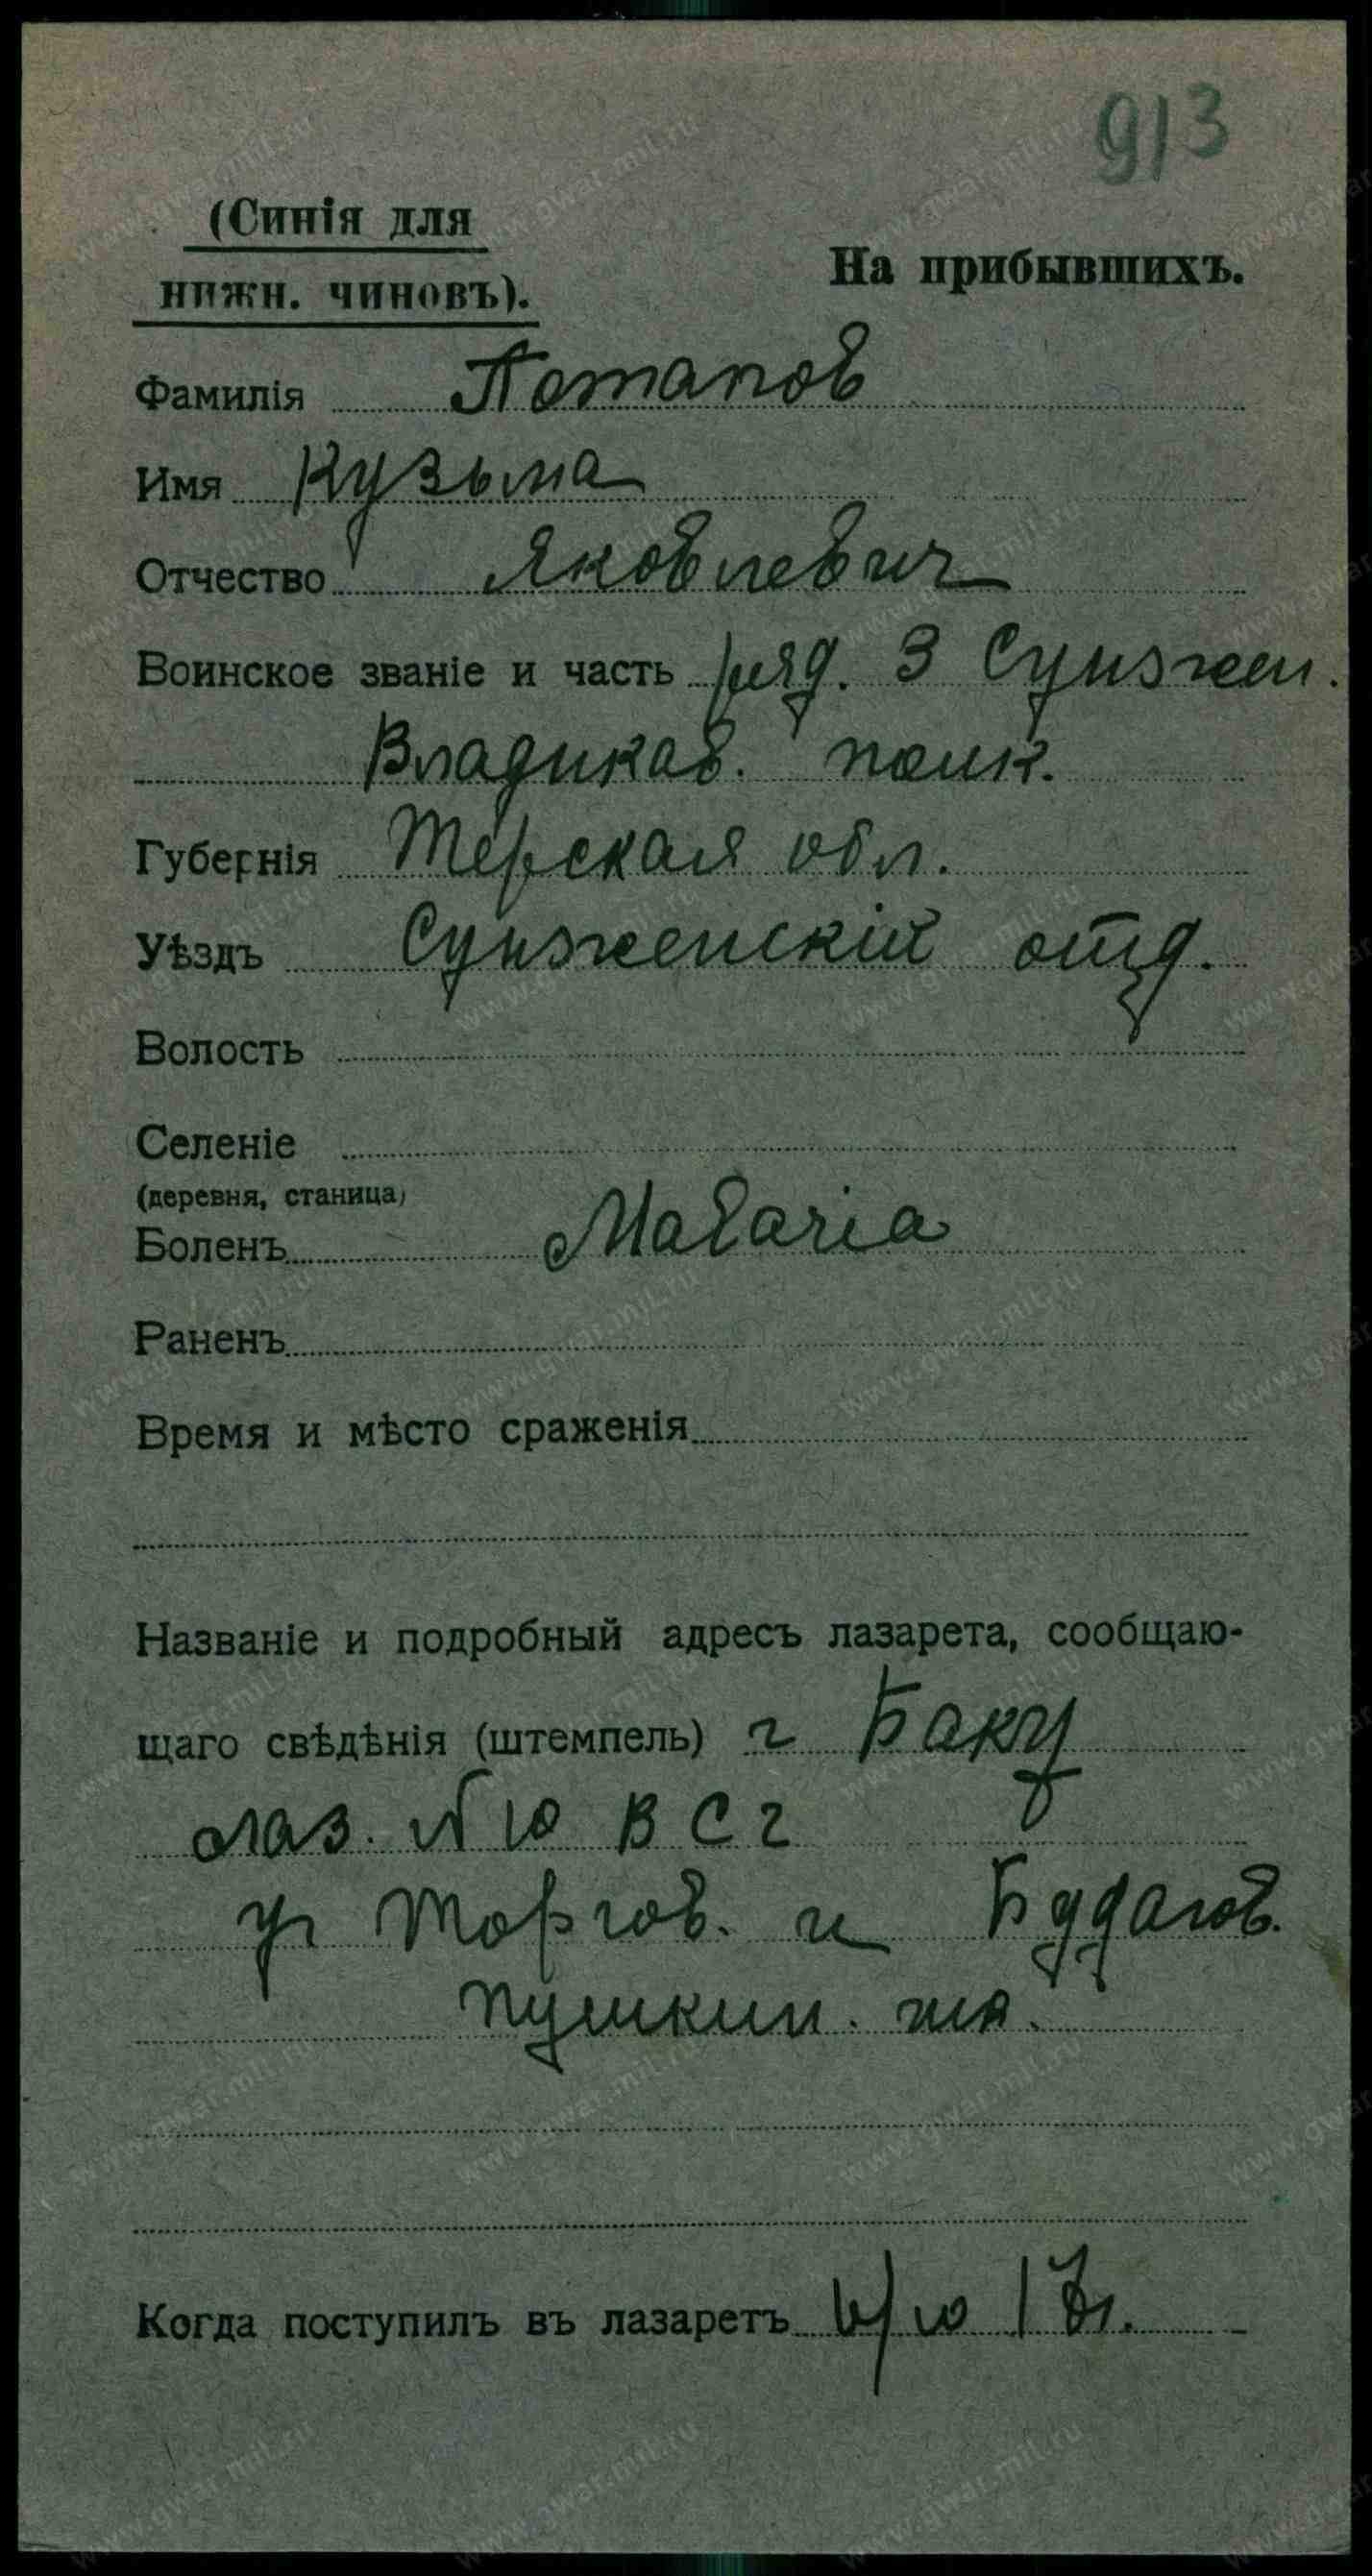 913
(Синія для
нижн. чиновъ).
На прибывшихъ.
Фамилія Потапов
Имя Кузьма
Отчество Яковлевич
Воинское званіе и часть ряд. 3 Сунжен.
Владикав. полк.
Губернія Терская обл.
Уѣздъ Сунженскій отд.
Волость
Селеніе
(деревня, станица)
Боленъ Malaria
Раненъ
Время и мѣсто сраженія
Названіе и подробный адресъ лазарета, сообщаю-
щаго свѣдѣнія (штемпель) г Баку
лаз. № 10 В С г
уг Торгов. и Будагов.
Пушкин. шк.
Когда поступилъ въ лазаретъ 17г.